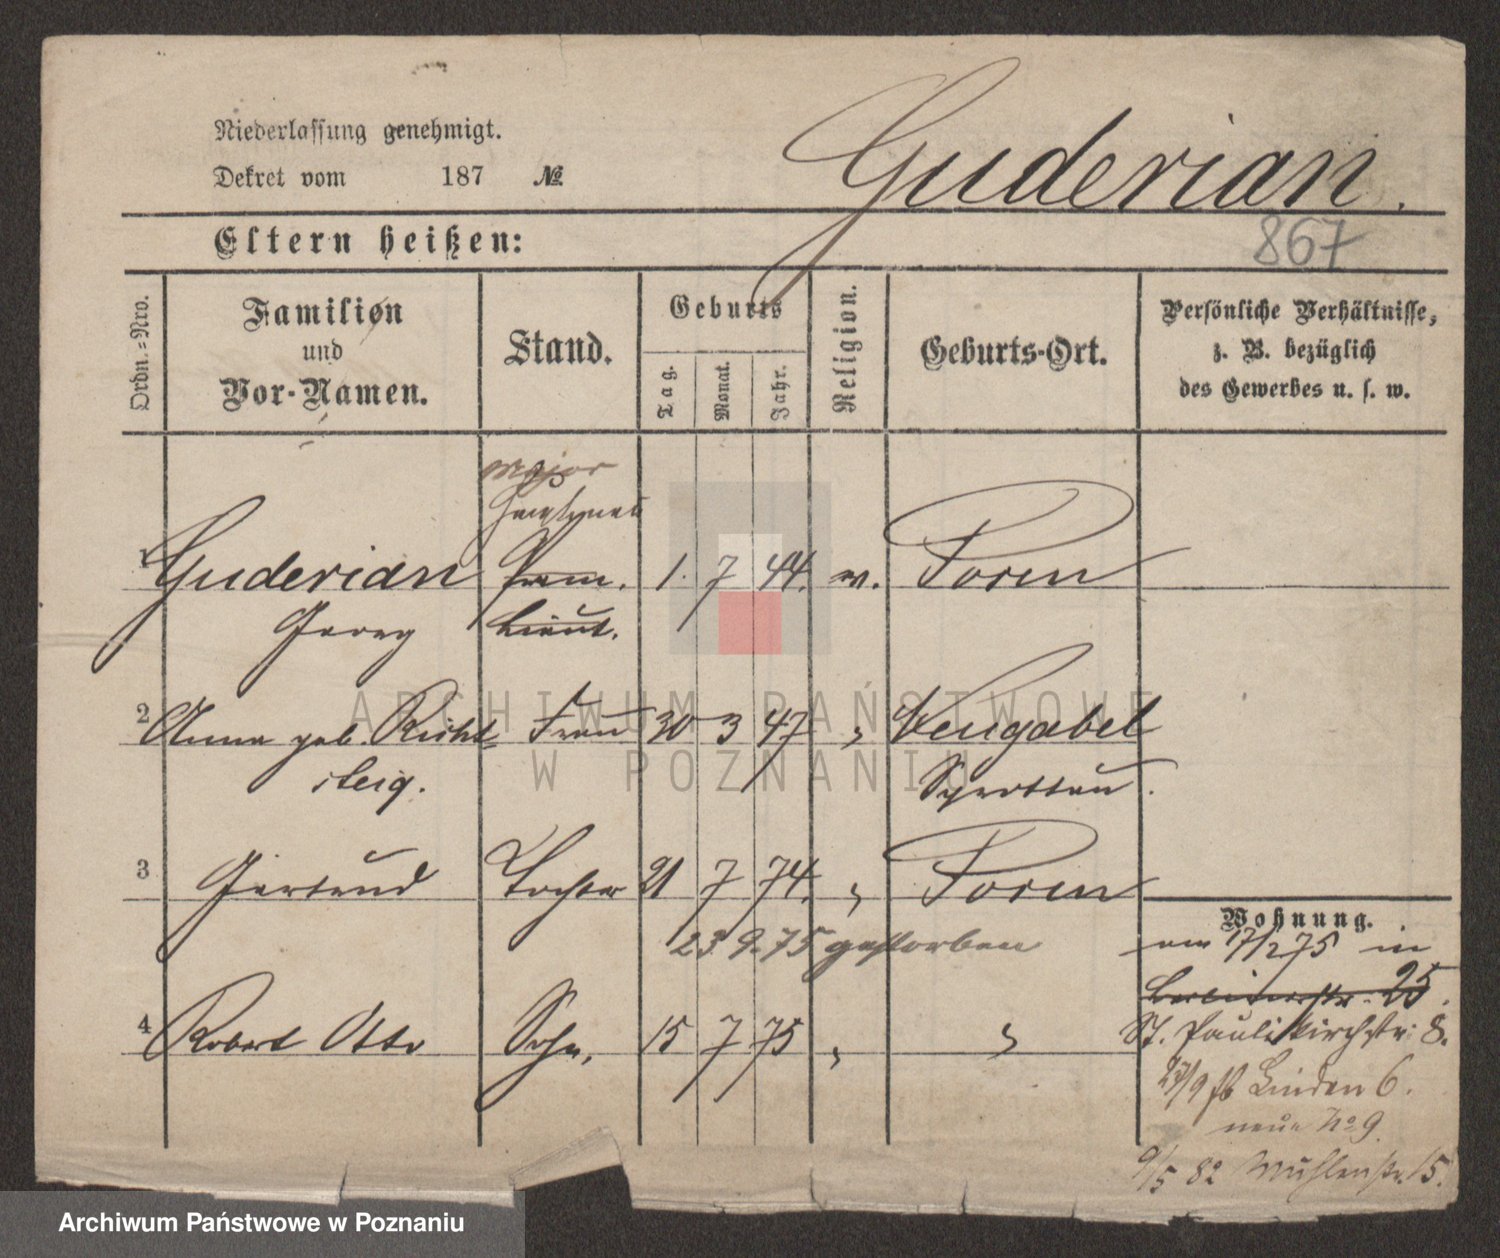 Niederlassung genehmigt.
Dekret vom 187 №
Guderian.
867
Eltern heißen:
Ordn.-Nro.
Familien
und
Vor-Namen.
Stand.
Geburts
Tag.
Monat.
Jahr.
Religion.
Geburts-Ort.
Persönliche Verhältnisse,
z. B. bezüglich
des Gewerbes u. s. w.
major
Hauptmann
1 Guderian Prem. 1. 7 44.
Georg Lieut.
2 Anna geb. Richt= Frau 30 3 47 "
steig. Sprottau.
3 Gertrud Tochter 21 7 74. "
23 9. 75 gestorben
4 Robert Otto Sohn. 15 7 75 " "
Wohnung.
am 17/2 75 in
Berlinerstr. 25.
St. Paulikirchstr: 8.
Linden 6.
neue No 9
9/5 82 Mühlenstr. 15.
ARCHIWUM PAŃSTWOWE
W POZNANIU
Archiwum Państwowe w Poznaniu